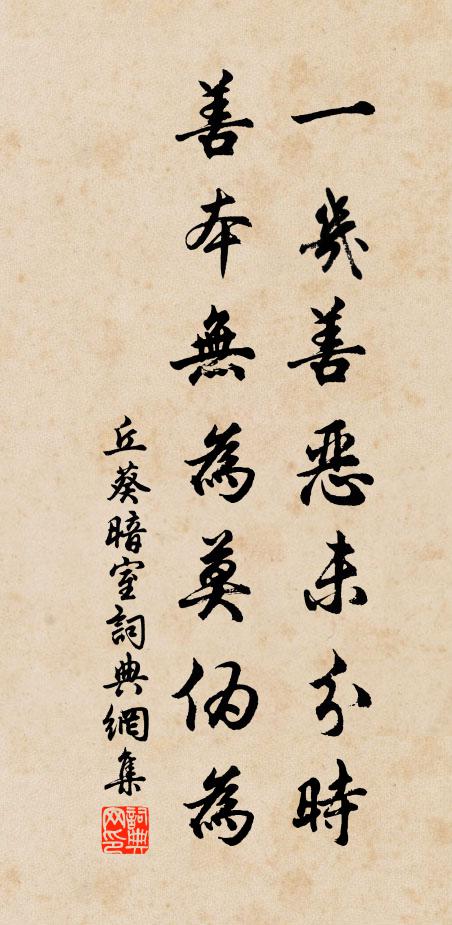 一幾善惡未分時
善本無為莫偽為
丘葵暗室詞典網集
詞典网印